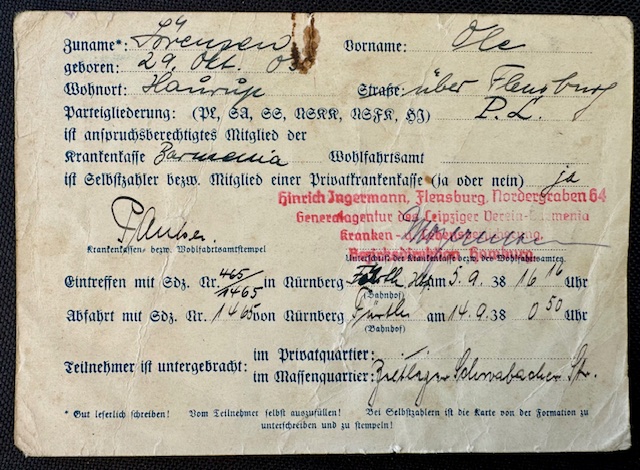 Zuname*: Sörensen Vorname: Ole
geboren: 29. Okt. 03
Wohnort: Haurup Straße: über Flensburg
Parteigliederung: (PL, SA, SS, NSKK, NSFK, HJ) P.L.
ist anspruchsberechtigtes Mitglied der
Krankenkasse Barmenia Wohlfahrtsamt
ist Selbstzahler bezw. Mitglied einer Privatkrankenkasse (ja oder nein) ja
Hinrich Ingermann, Flensburg, Nordergraben 64
Generalagentur des Leipziger Verein-Barmenia
Kranken- Lebensversicherung,
Bezirksdirektion Hamburg
Krankenkassen- bezw. Wohlfahrtsamtstempel
Unterschrift der Krankenkasse bezw. des Wohlfahrtsamtes
Eintreffen mit Sdz. Nr. 465/1465 in Nürnberg Fürth am 5.9.38 16 16 Uhr
(Bahnhof)
Abfahrt mit Sdz. Nr. 1465 von Nürnberg Fürth am 14.9.38 0 50 Uhr
(Bahnhof)
Teilnehmer ist untergebracht: im Privatquartier:
im Massenquartier: Zeltlager Schwabacher Str.
* Gut leserlich schreiben! Vom Teilnehmer selbst auszufüllen! Bei Selbstzahlern ist die Karte von der Formation zu
unterschreiben und zu stempeln!